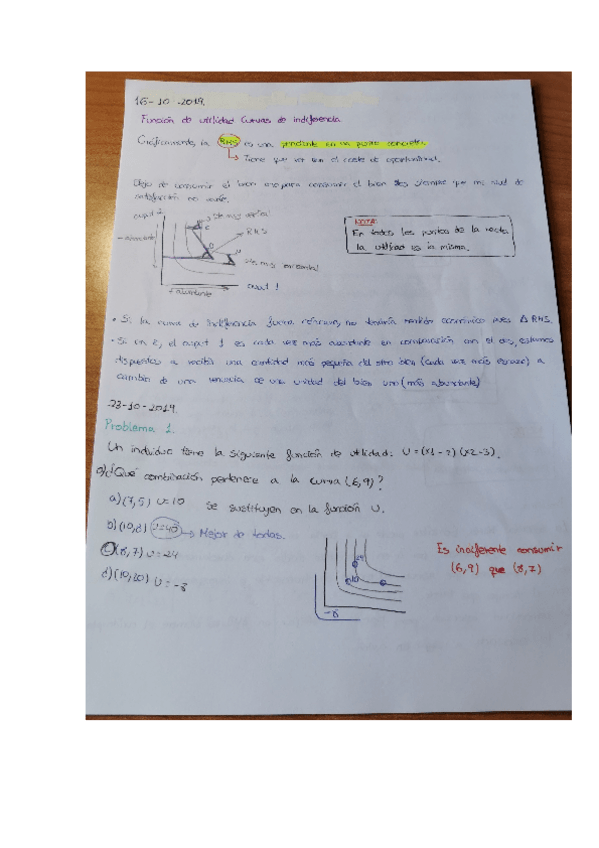 16-10-2019.
Función de utilidad Curvas de indiferencia.
Gráficamente, la RMS es una pendiente en un punto concreto.
Tiene que ver con el coste de oportunidad.
Dejo de consumir el bien uno para consumir el bien dos siempre que mi nivel de
satisfacción no varíe.
NOTA:
En todos los puntos de la recta
la utilidad es la misma.
RMS
+ abundante
• Si la curva de indiferencia fuera cóncava, no tendría sentido económico pues Δ RMS.
dispuestos a recibir una cantidad más pequeña del otro bien (cada vez más escaso) a
cambio de una renuncia de una unidad del bien uno (más abundante)
23-10-2019.
Problema 1.
Un individuo tiene la siguiente función de utilidad: U=(x1-2)(x2-3).
a) ¿Qué combinación pertenece a la curva (6,9)?
a) (7,5) U=10 Se sustituyen en la función U.
b) (10,8) U=40 → Mejor de todas.
c) (8,7) U=24
U=-8
Es indiferente consumir
(6,9) que (8,7)
-8